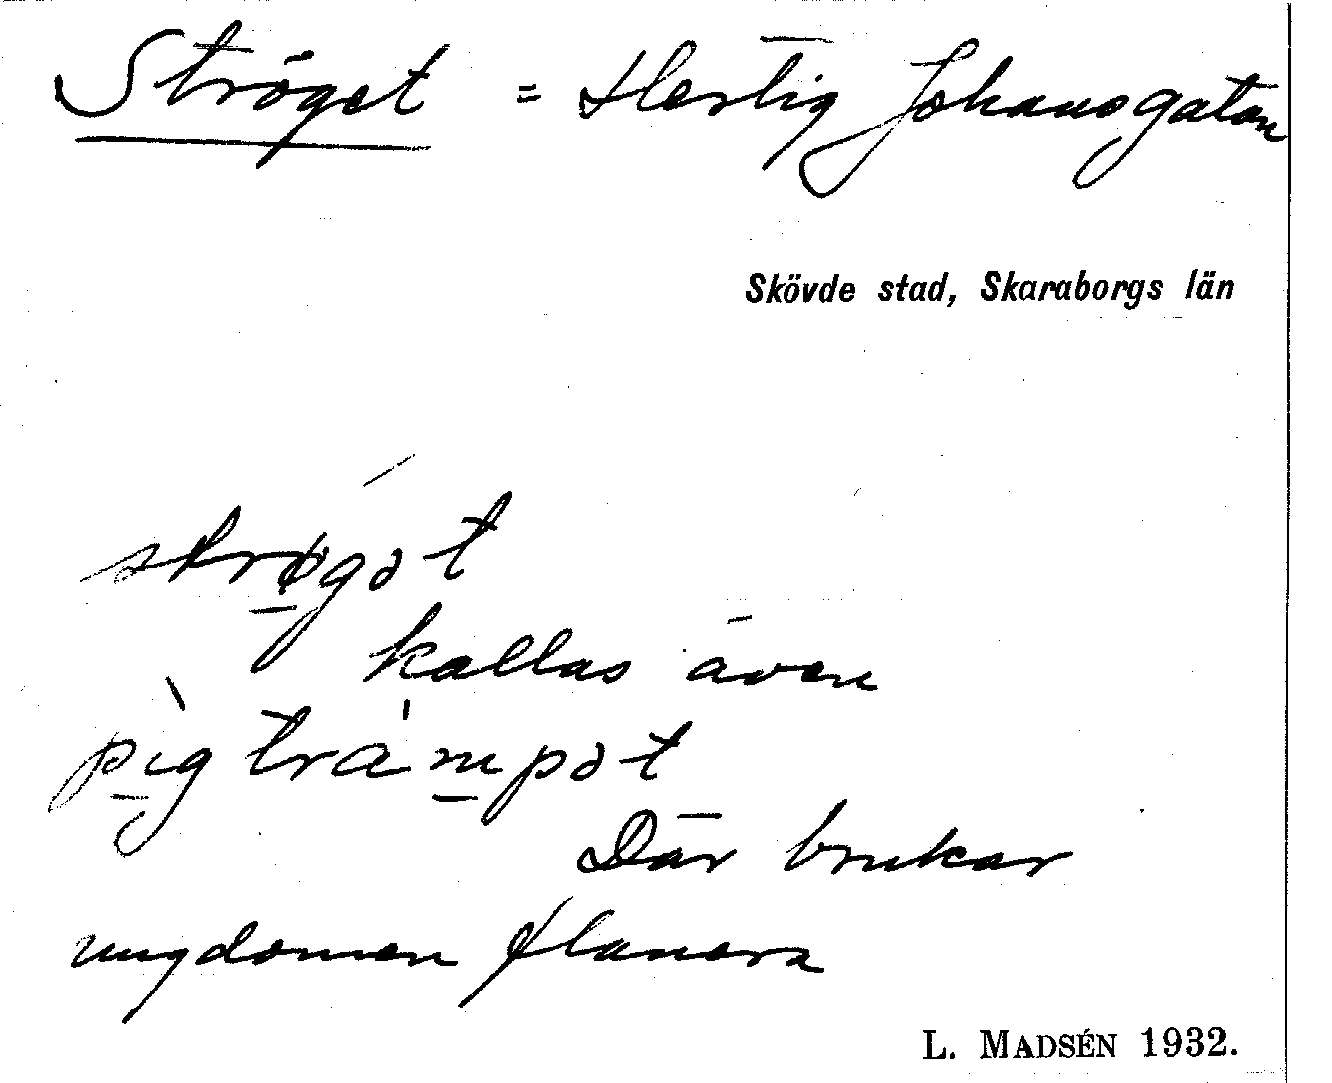 Ströget = Hertig Johansgatan
Skövde stad, Skaraborgs län
strøgət
kallas även
pìgtram̀pət
Där brukar
ungdomen flanera
L. MADSÉN 1932.